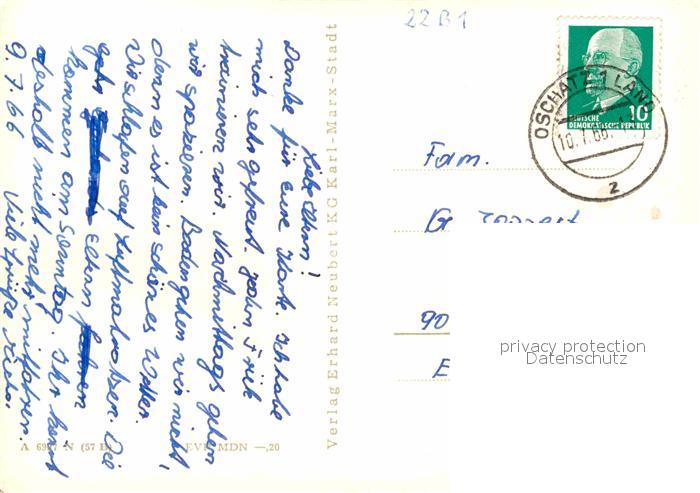 Liebe Eltern!
Danke für Eure Karte. Ich habe
mich sehr gefreut. Jeden Früh
trainieren wir. Nachmittags gehen
wir spazieren. Baden gehen wir nicht,
denn es ist kein schönes Wetter.
Wir schlafen auf Luftmatratzen. Die
Eltern
kommen am Sonntag. Ihr könnt
deshalb nicht mehr mitfahren.
9.7.66 Viele Grüße
Verlag Erhard Neubert KG Karl-Marx-Stadt
A 69 7 N (57 B) EVP MDN —,20
22 B 1
10
DEUTSCHE
DEMOKRATISCHE REPUBLIK
OSCHATZ 1 LAND
10.7.66
z
Fam.
G
90
E
privacy protection
Datenschutz